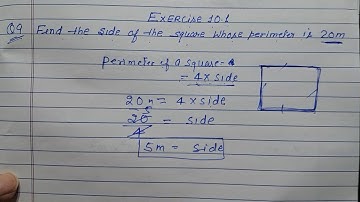 Exercise 10.1
Q9 Find the side of the square whose perimeter is 20m.
perimeter of a square =
= 4 × side
20m = 4 × side
5
20
4
= side
5m = side